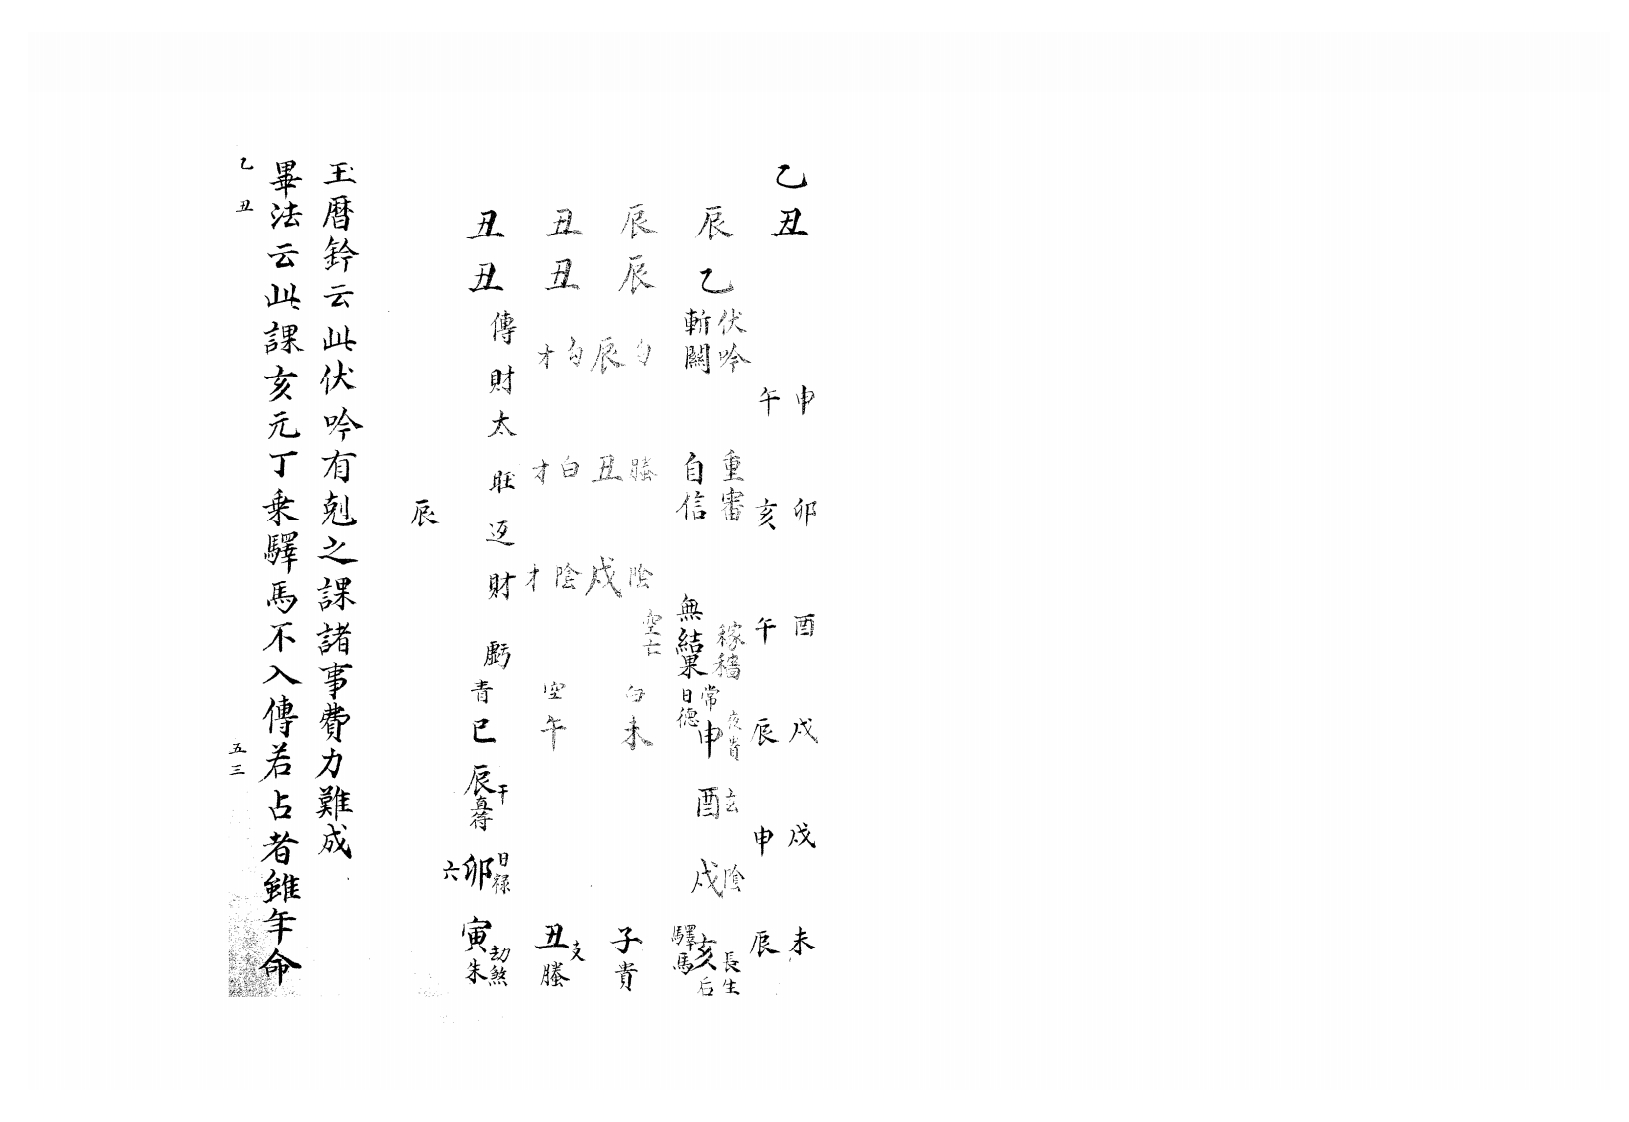 乙丑
申 卯 酉 戌 戌 未
午 亥 午 辰 申 辰
辰乙
辰辰
丑丑
丑丑
伏吟 重審 稼穡
斬關 自信 無結果
勾 螣 陰
辰 丑 戌 空亡
勾 白 陰
才 才 才
傳財太旺迈財虧
辰
夜貴
常申日德
玄酉
陰戌
長生
亥后
驛馬
白未
空午
青巳
辰干真符
六卯日禄
寅朱劫煞
丑螣支
子貴
玉曆鈐云此伏吟有剋之課諸事費力難成
畢法云此課亥元丁乗驛馬不入傳若占者雖年命
乙丑
五三